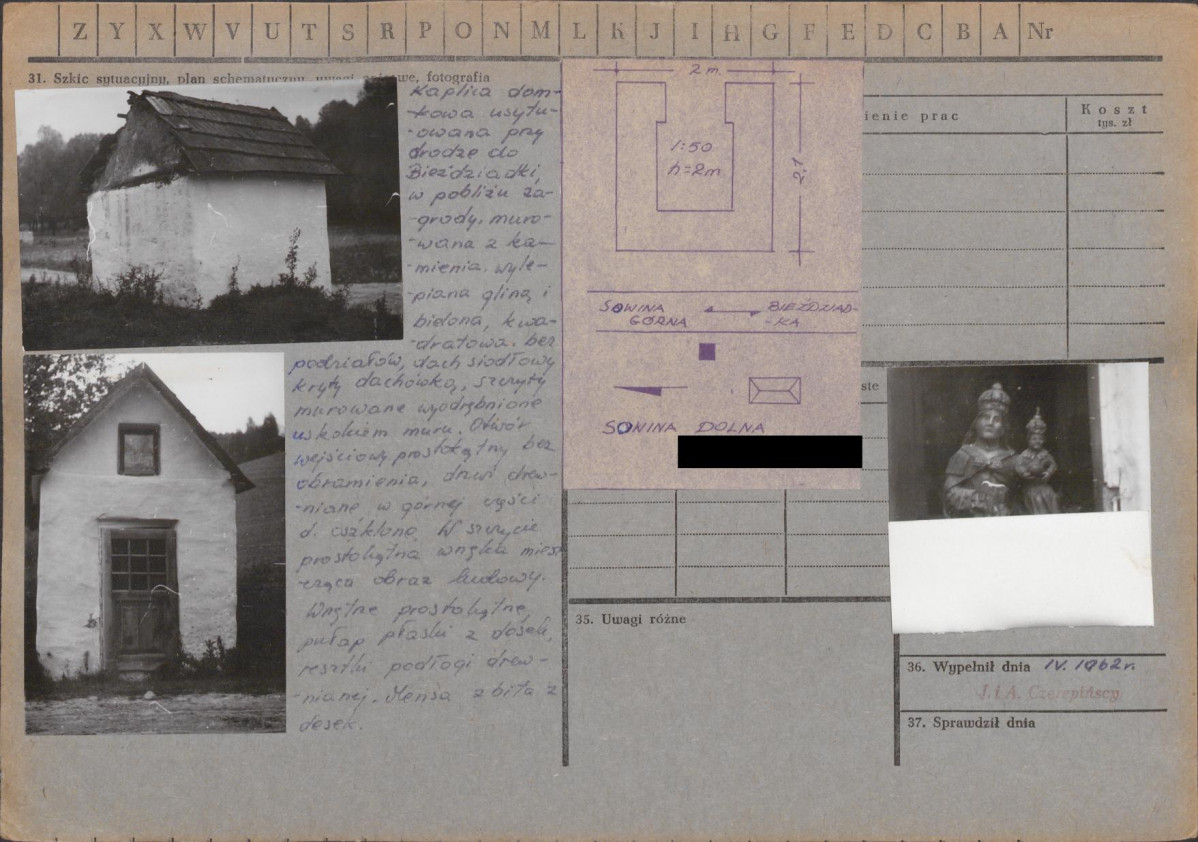 Z Y X W V U T S R P O N M L K J I H G F E D C B A Nr
31. Szkic sytuacyjny, plan schematyczny, uwagi we, fotografia
Kaplica dom-
-kowa usytu-
-owana przy
drodze do
Bieździadki,
w pobliżu za-
-grody, muro-
-wana z ka-
mienia, wyle-
-piana gliną i
bielona, kwa-
-dratowa, bez
podziałów, dach siodłowy
kryty dachówką, szczyty
murowane wyodrębnione
uskokiem muru. Otwór
wejściowy prostokątny bez
obramienia, drzwi drew-
-niane w górnej części
d. oszklone. W szczycie
prostokątna wnęka miesz
cząca obraz ludowy.
Wnętrze prostokątne,
pułap płaski z desek,
resztki podłogi drew-
-nianej. Mensa zbita z
desek.
2 m.
1:50
h=2m
2,1
SOWINA GÓRNA
BIEŹDZIAD-
-KA
SOWINA DOLNA
ienie prac
Koszt
tys. zł
ste
35. Uwagi różne
36. Wypełnił dnia IV. 1962 r.
J. i A. Czerepińscy
37. Sprawdził dnia